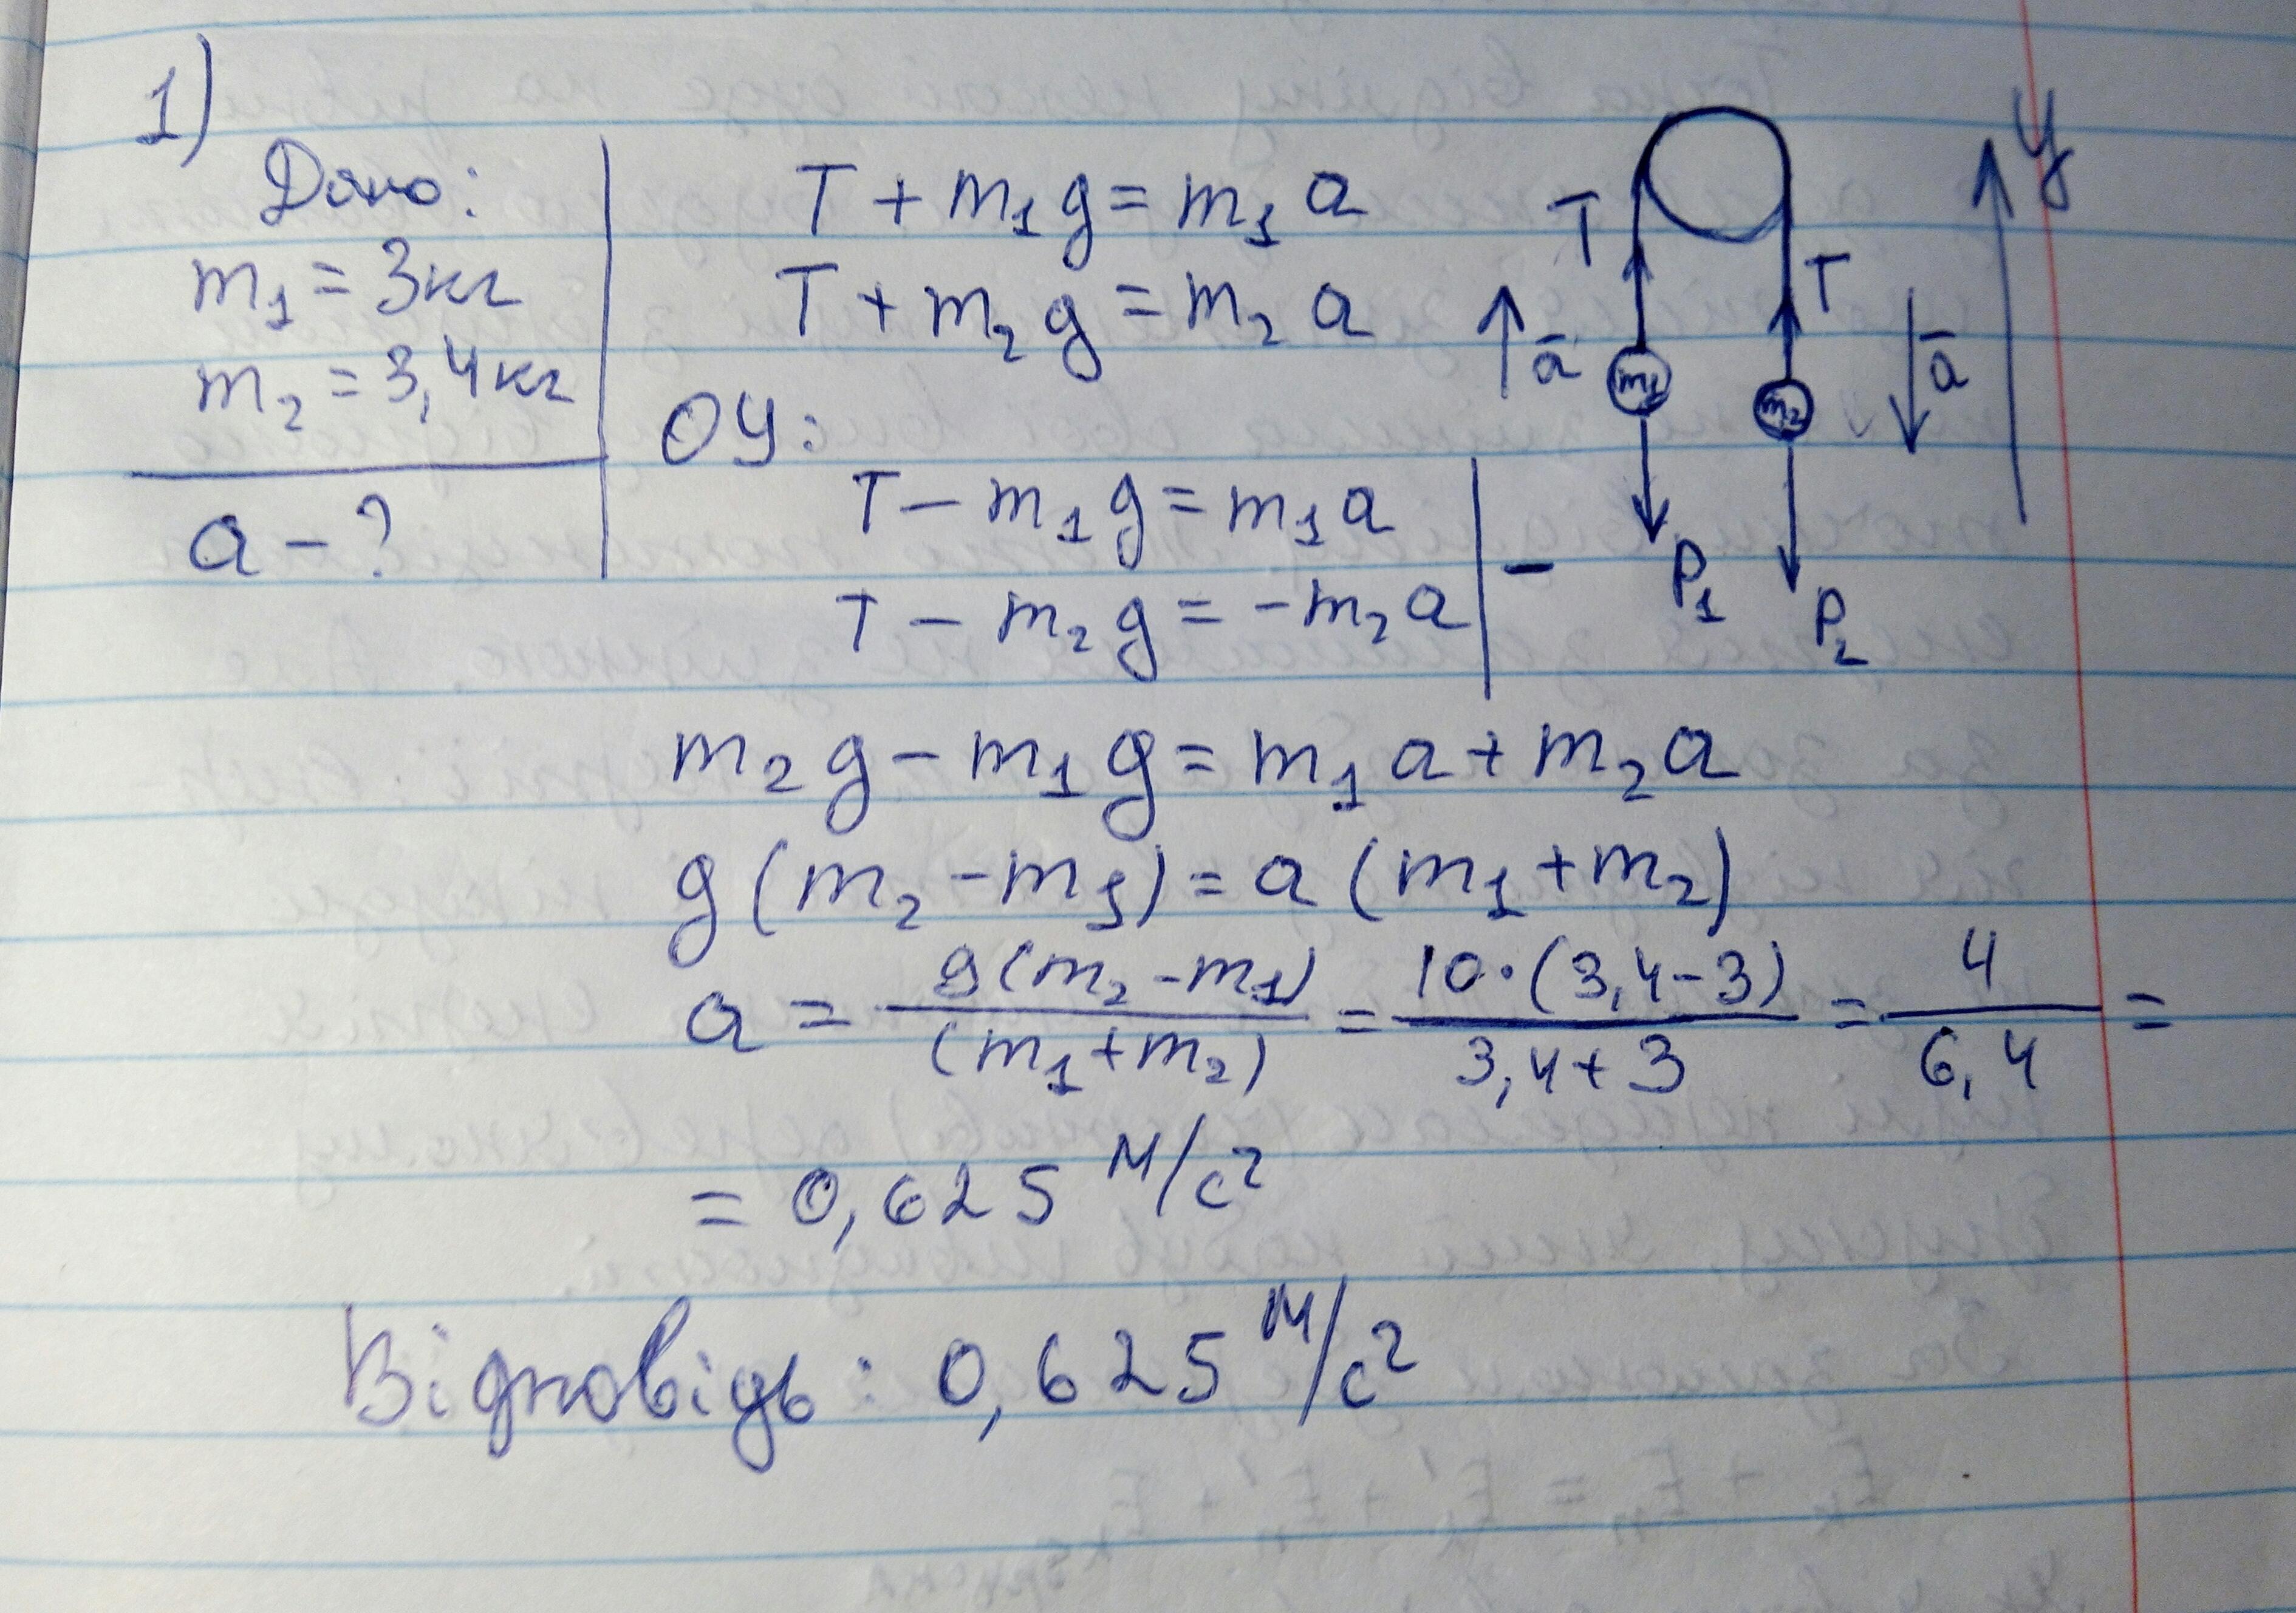 1)
Дано:
m₁ = 3кг
m₂ = 3,4кг
a - ?
T + m₁ g = m₁ a
T + m₂ g = m₂ a
OY:
T - m₁ g = m₁ a
T - m₂ g = - m₂ a
-
T
T
a
a
m₁
m₂
P₁
P₂
y
m₂ g - m₁ g = m₁ a + m₂ a
g (m₂ - m₁) = a (m₁ + m₂)
a = g(m₂ - m₁) / (m₁ + m₂) = 10·(3,4 - 3) / 3,4 + 3 = 4 / 6,4 =
= 0,625 м/с²
Відповідь: 0,625 м/с²